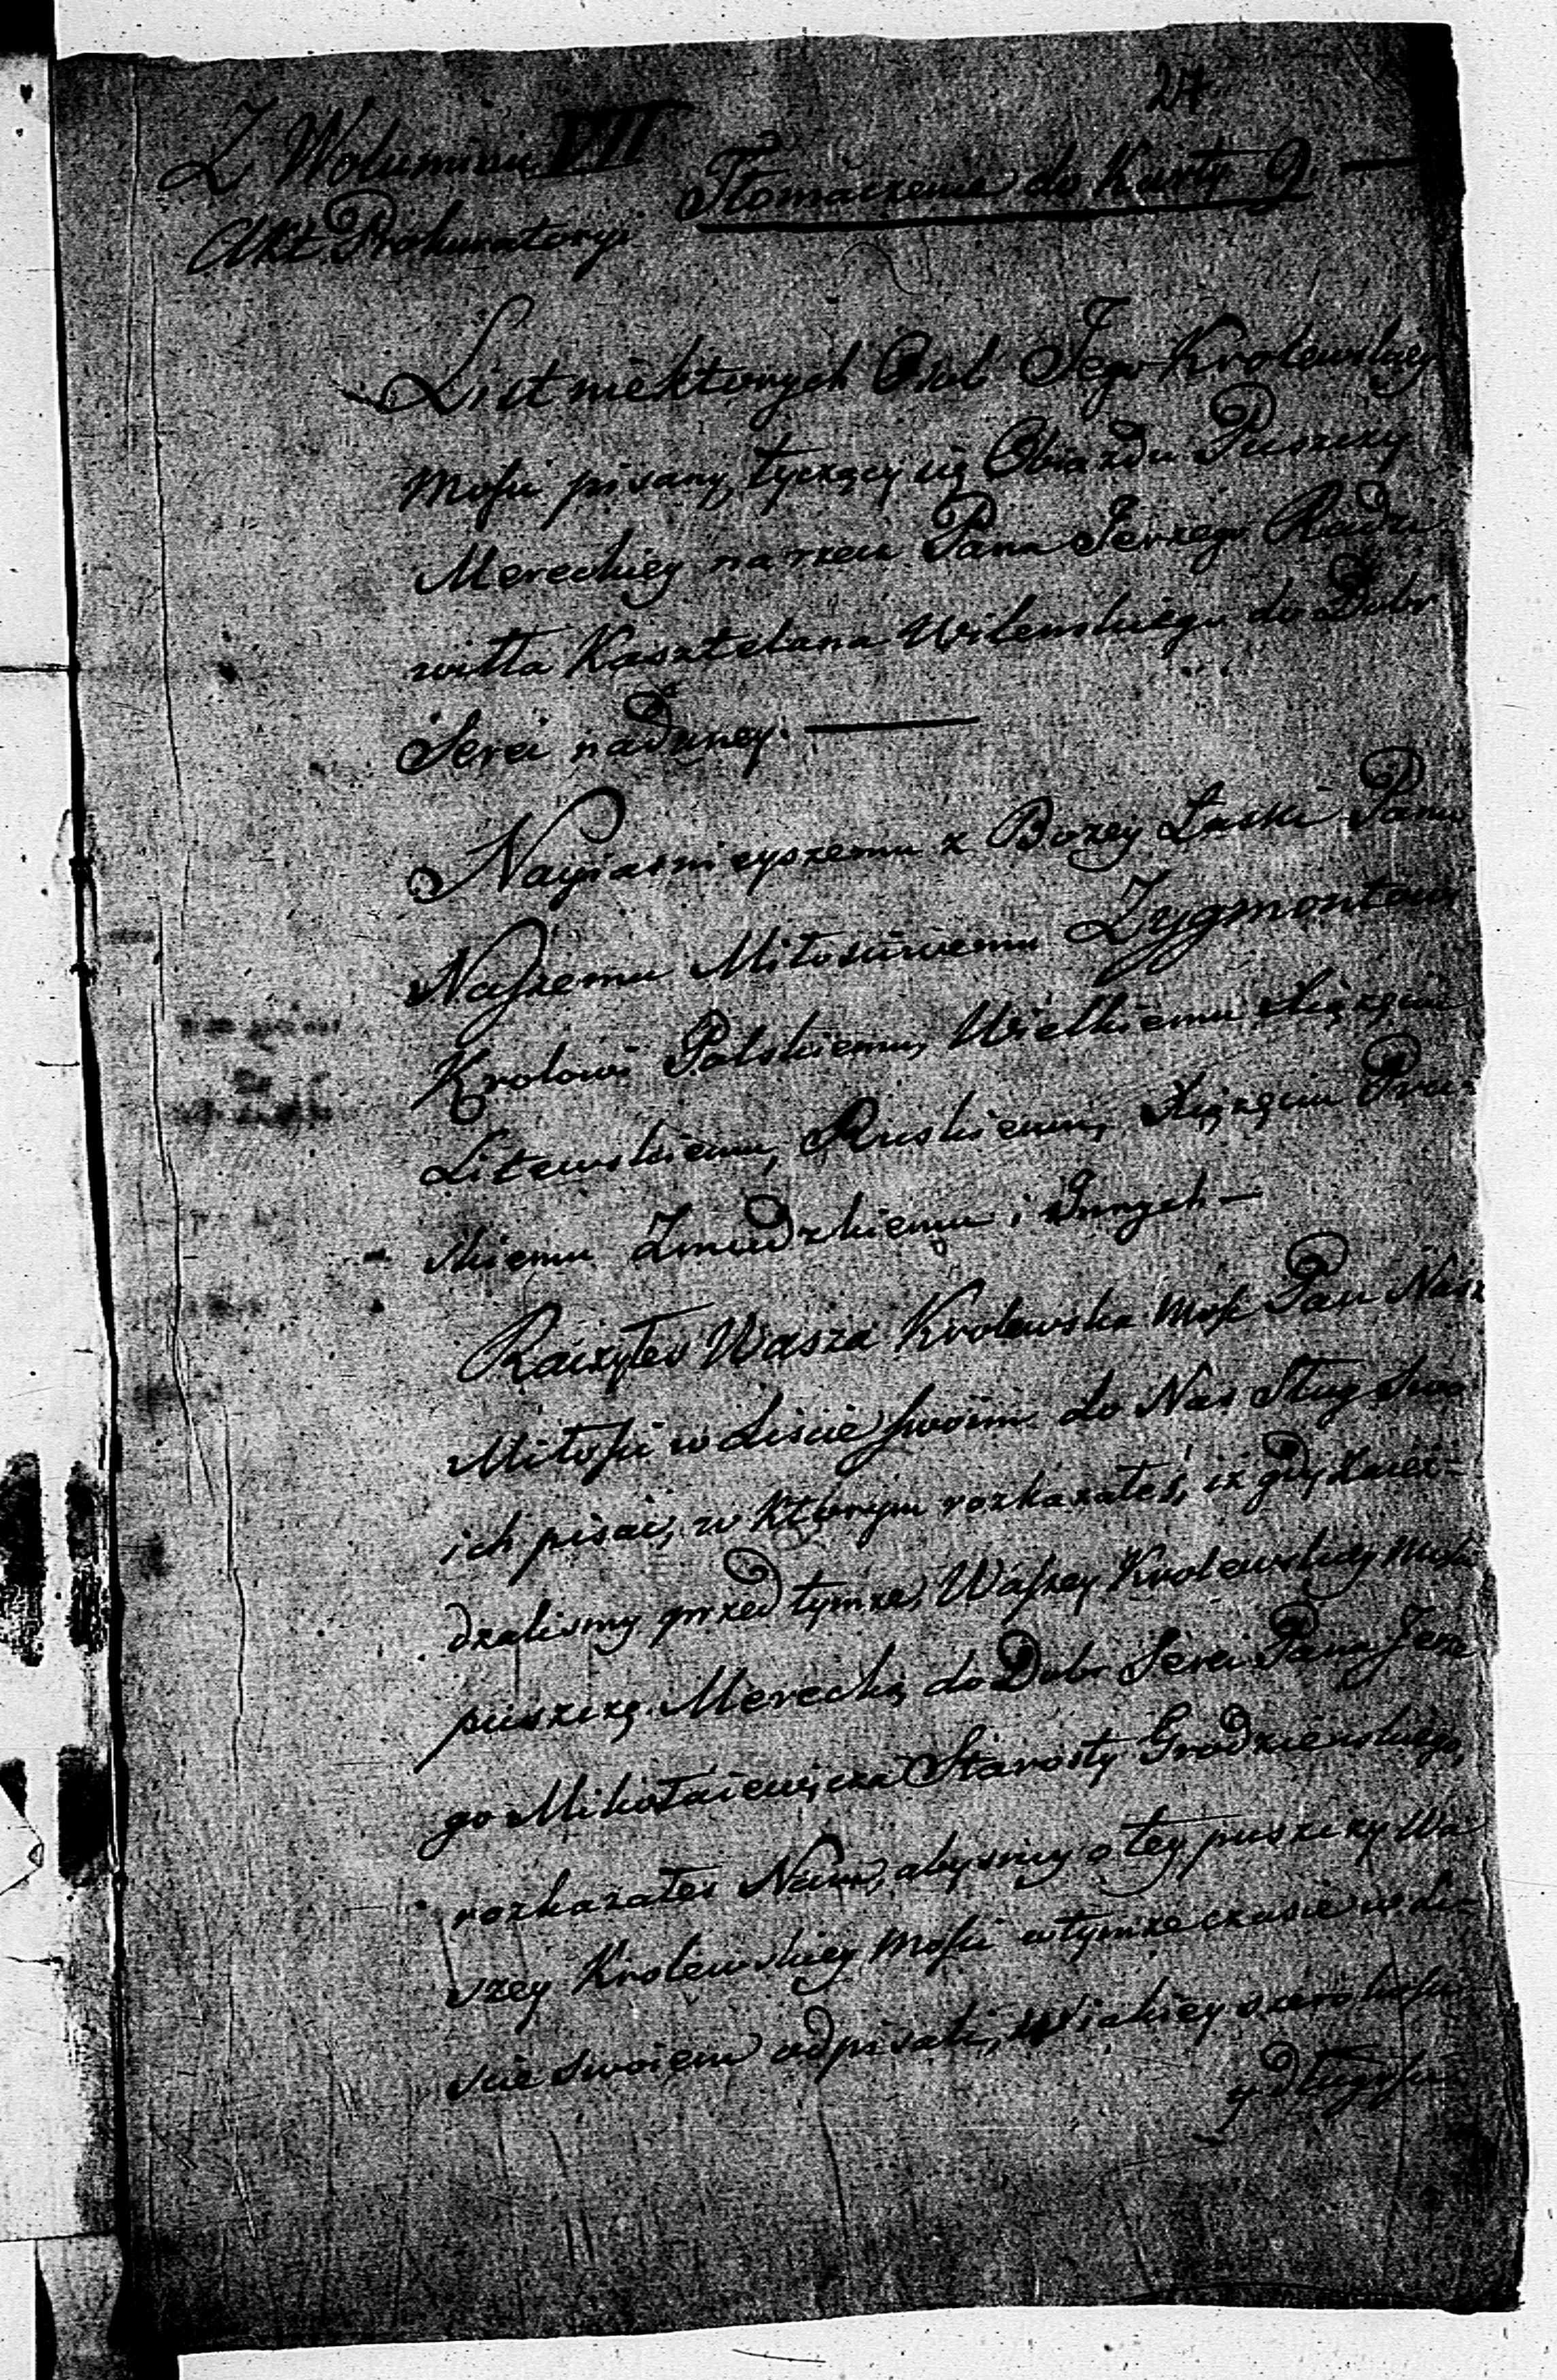 27
Z Woluminu VII
Tłomaczenie do Karty 9. —
Akt Prokuratoryi
List niektorych Osob Jego Krolewskiey
Mośći pisany, tyczący się Obiazdu Puszczy
Mereckiey na rzecz Pana Jerzego Radzi
wiłła Kasztelana Wilenskiego do Dobr
Serei nadaney. —
Nayiasnieyszemu z Bozey Łaski Panu
Naszemu Miłosciwemu Zygmontowi
Krolowi Polskiemu, Wielkiemu Xiązęciu
Litewskiemu, Ruskiemu, Xiązęciu Pru-
skiemu Zmudzkiemu i Innych —
Raczyłes Wasza Krolewska Mość Pan Nasz
Miłości w Liscie swoim do Nas Sług Swo
ich pisać, w ktorym rozkazałeś, iz gdy Zaież-
dzalismy przed tymze, Waszey Krolewskiey Mości
puszczę Merecką do Dobr Serei Pana Jerze
go Mikołaiewicza Starosty Grodzienskiego,
rozkazałes Nam, abysmy o tey puszczy Wa
szey Krolewskiey Mości w tymze czasie w Li-
scie swoiem odpisali, w iakiey szerokości
y długości